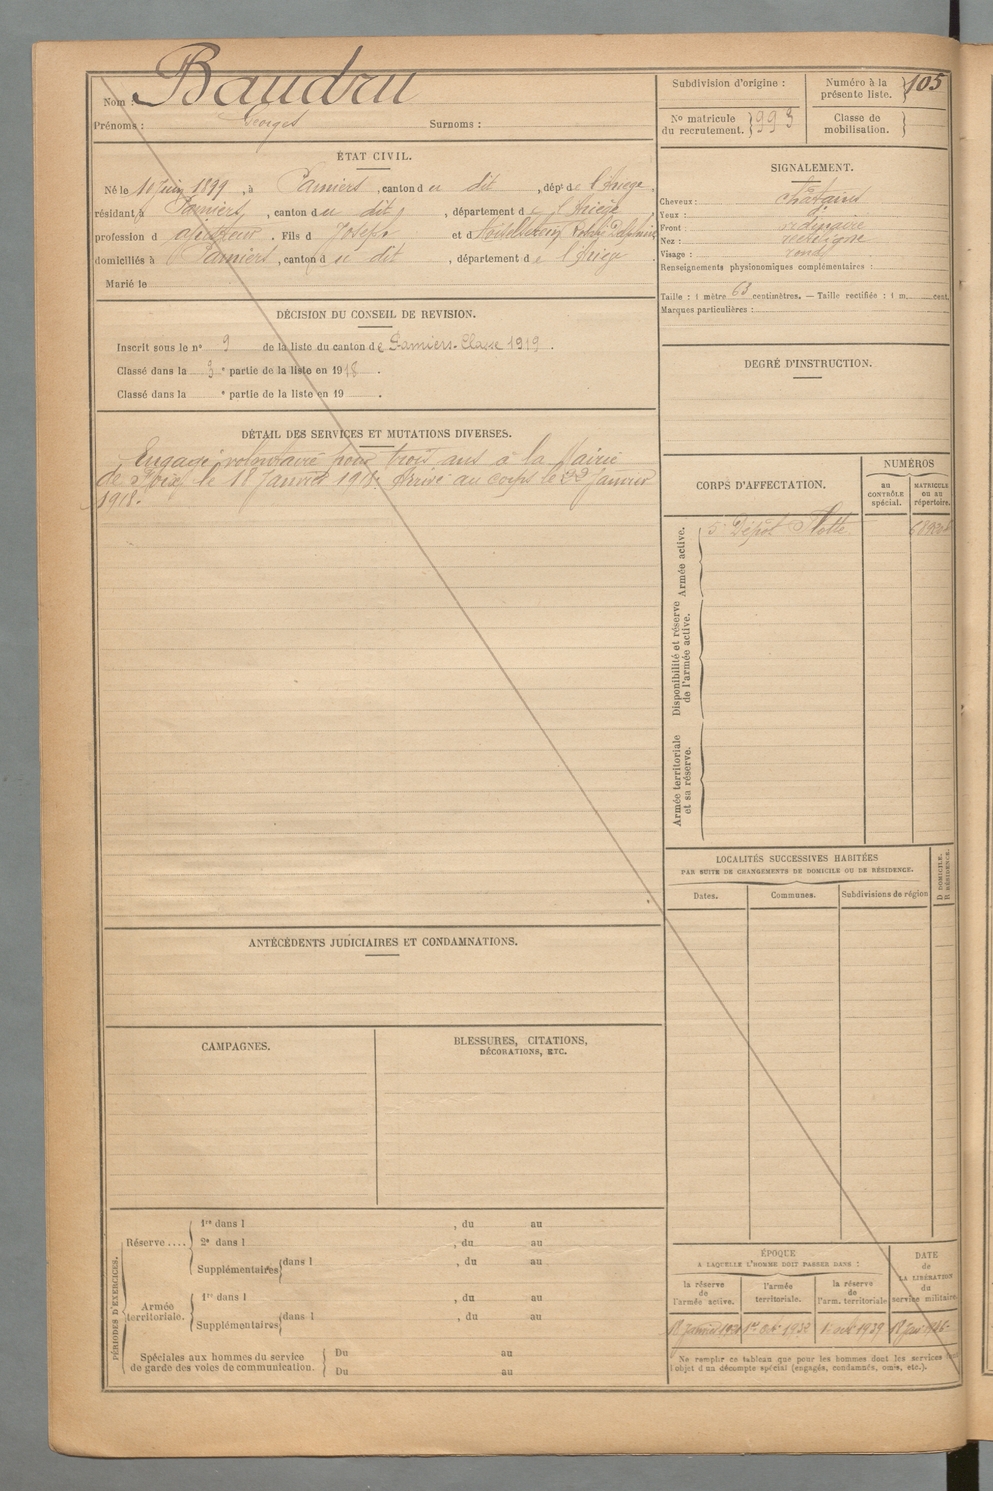 Nom : Baudru
Prénoms : Georges Surnoms :
Subdivision d'origine :
Numéro à la présente liste. 105
No matricule du recrutement. 993
Classe de mobilisation.
ÉTAT CIVIL.
Né le 10 Juin 1899, à Pamiers, canton du dit, dépt de l'Ariège,
résidant à Pamiers, canton du dit, département de l'Ariège
profession d'ajusteur. Fils de Joseph et d
domiciliés à Pamiers, canton du dit, département de l'Ariège.
Marié le
SIGNALEMENT.
Cheveux : châtains
Yeux : do
Front : ordinaire
Nez : rectiligne
Visage : rond
Renseignements physionomiques complémentaires :
Taille : 1 mètre 63 centimètres. — Taille rectifiée : 1 m. cent.
Marques particulières :
DÉCISION DU CONSEIL DE REVISION.
Inscrit sous le no 9 de la liste du canton de Pamiers. Classe 1919.
Classé dans la 3e partie de la liste en 1918.
Classé dans la e partie de la liste en 19 .
DEGRÉ D'INSTRUCTION.
DÉTAIL DES SERVICES ET MUTATIONS DIVERSES.
Engagé volontaire pour trois ans à la Mairie
de Foix le 18 Janvier 1918. Arrivé au corps le Janvier
1918.
CORPS D'AFFECTATION.
NUMÉROS
au CONTRÔLE spécial.
MATRICULE ou au répertoire.
Armée active.
5e Dépôt Flotte
Disponibilité et réserve de l'armée active.
Armée territoriale et sa réserve.
LOCALITÉS SUCCESSIVES HABITÉES
PAR SUITE DE CHANGEMENTS DE DOMICILE OU DE RÉSIDENCE.
Dates.
Communes.
Subdivisions de région
D DOMICILE.
R RÉSIDENCE.
ANTÉCÉDENTS JUDICIAIRES ET CONDAMNATIONS.
CAMPAGNES.
BLESSURES, CITATIONS,
DÉCORATIONS, ETC.
PÉRIODES D'EXERCICES.
Réserve....
1re dans l , du au
2e dans l , du au
Supplémentaires dans l , du au
Armée territoriale.
1re dans l , du au
Supplémentaires dans l , du au
Spéciales aux hommes du service
de garde des voies de communication.
Du au
Du au
ÉPOQUE
A LAQUELLE L'HOMME DOIT PASSER DANS :
la réserve de l'armée active.
l'armée territoriale.
la réserve de l'arm. territoriale
DATE de LA LIBÉRATION du service militaire.
18 Janvier 1921
1er Oct. 1932
1er oct 1939
Ne remplir ce tableau que pour les hommes dont les services sont
l'objet d'un décompte spécial (engagés, condamnés, omis, etc.).